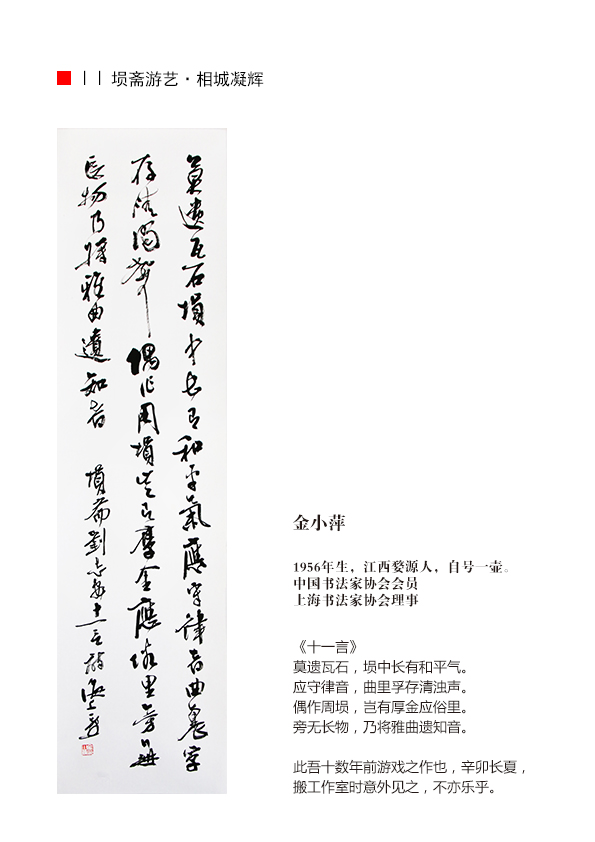 埙斋游艺·相城凝辉
莫遺瓦石塤中長有和平氣應守律音曲裏孚
存清濁聲偶作周塤豈有厚金應俗里旁無
長物乃將雅曲遺知音 塤齋劉 十一言詩
金小萍
1956年生，江西婺源人，自号一壶。
中国书法家协会会员
上海书法家协会理事
《十一言》
莫遗瓦石，埙中长有和平气。
应守律音，曲里孚存清浊声。
偶作周埙，岂有厚金应俗里。
旁无长物，乃将雅曲遗知音。
此吾十数年前游戏之作也，辛卯长夏，
搬工作室时意外见之，不亦乐乎。